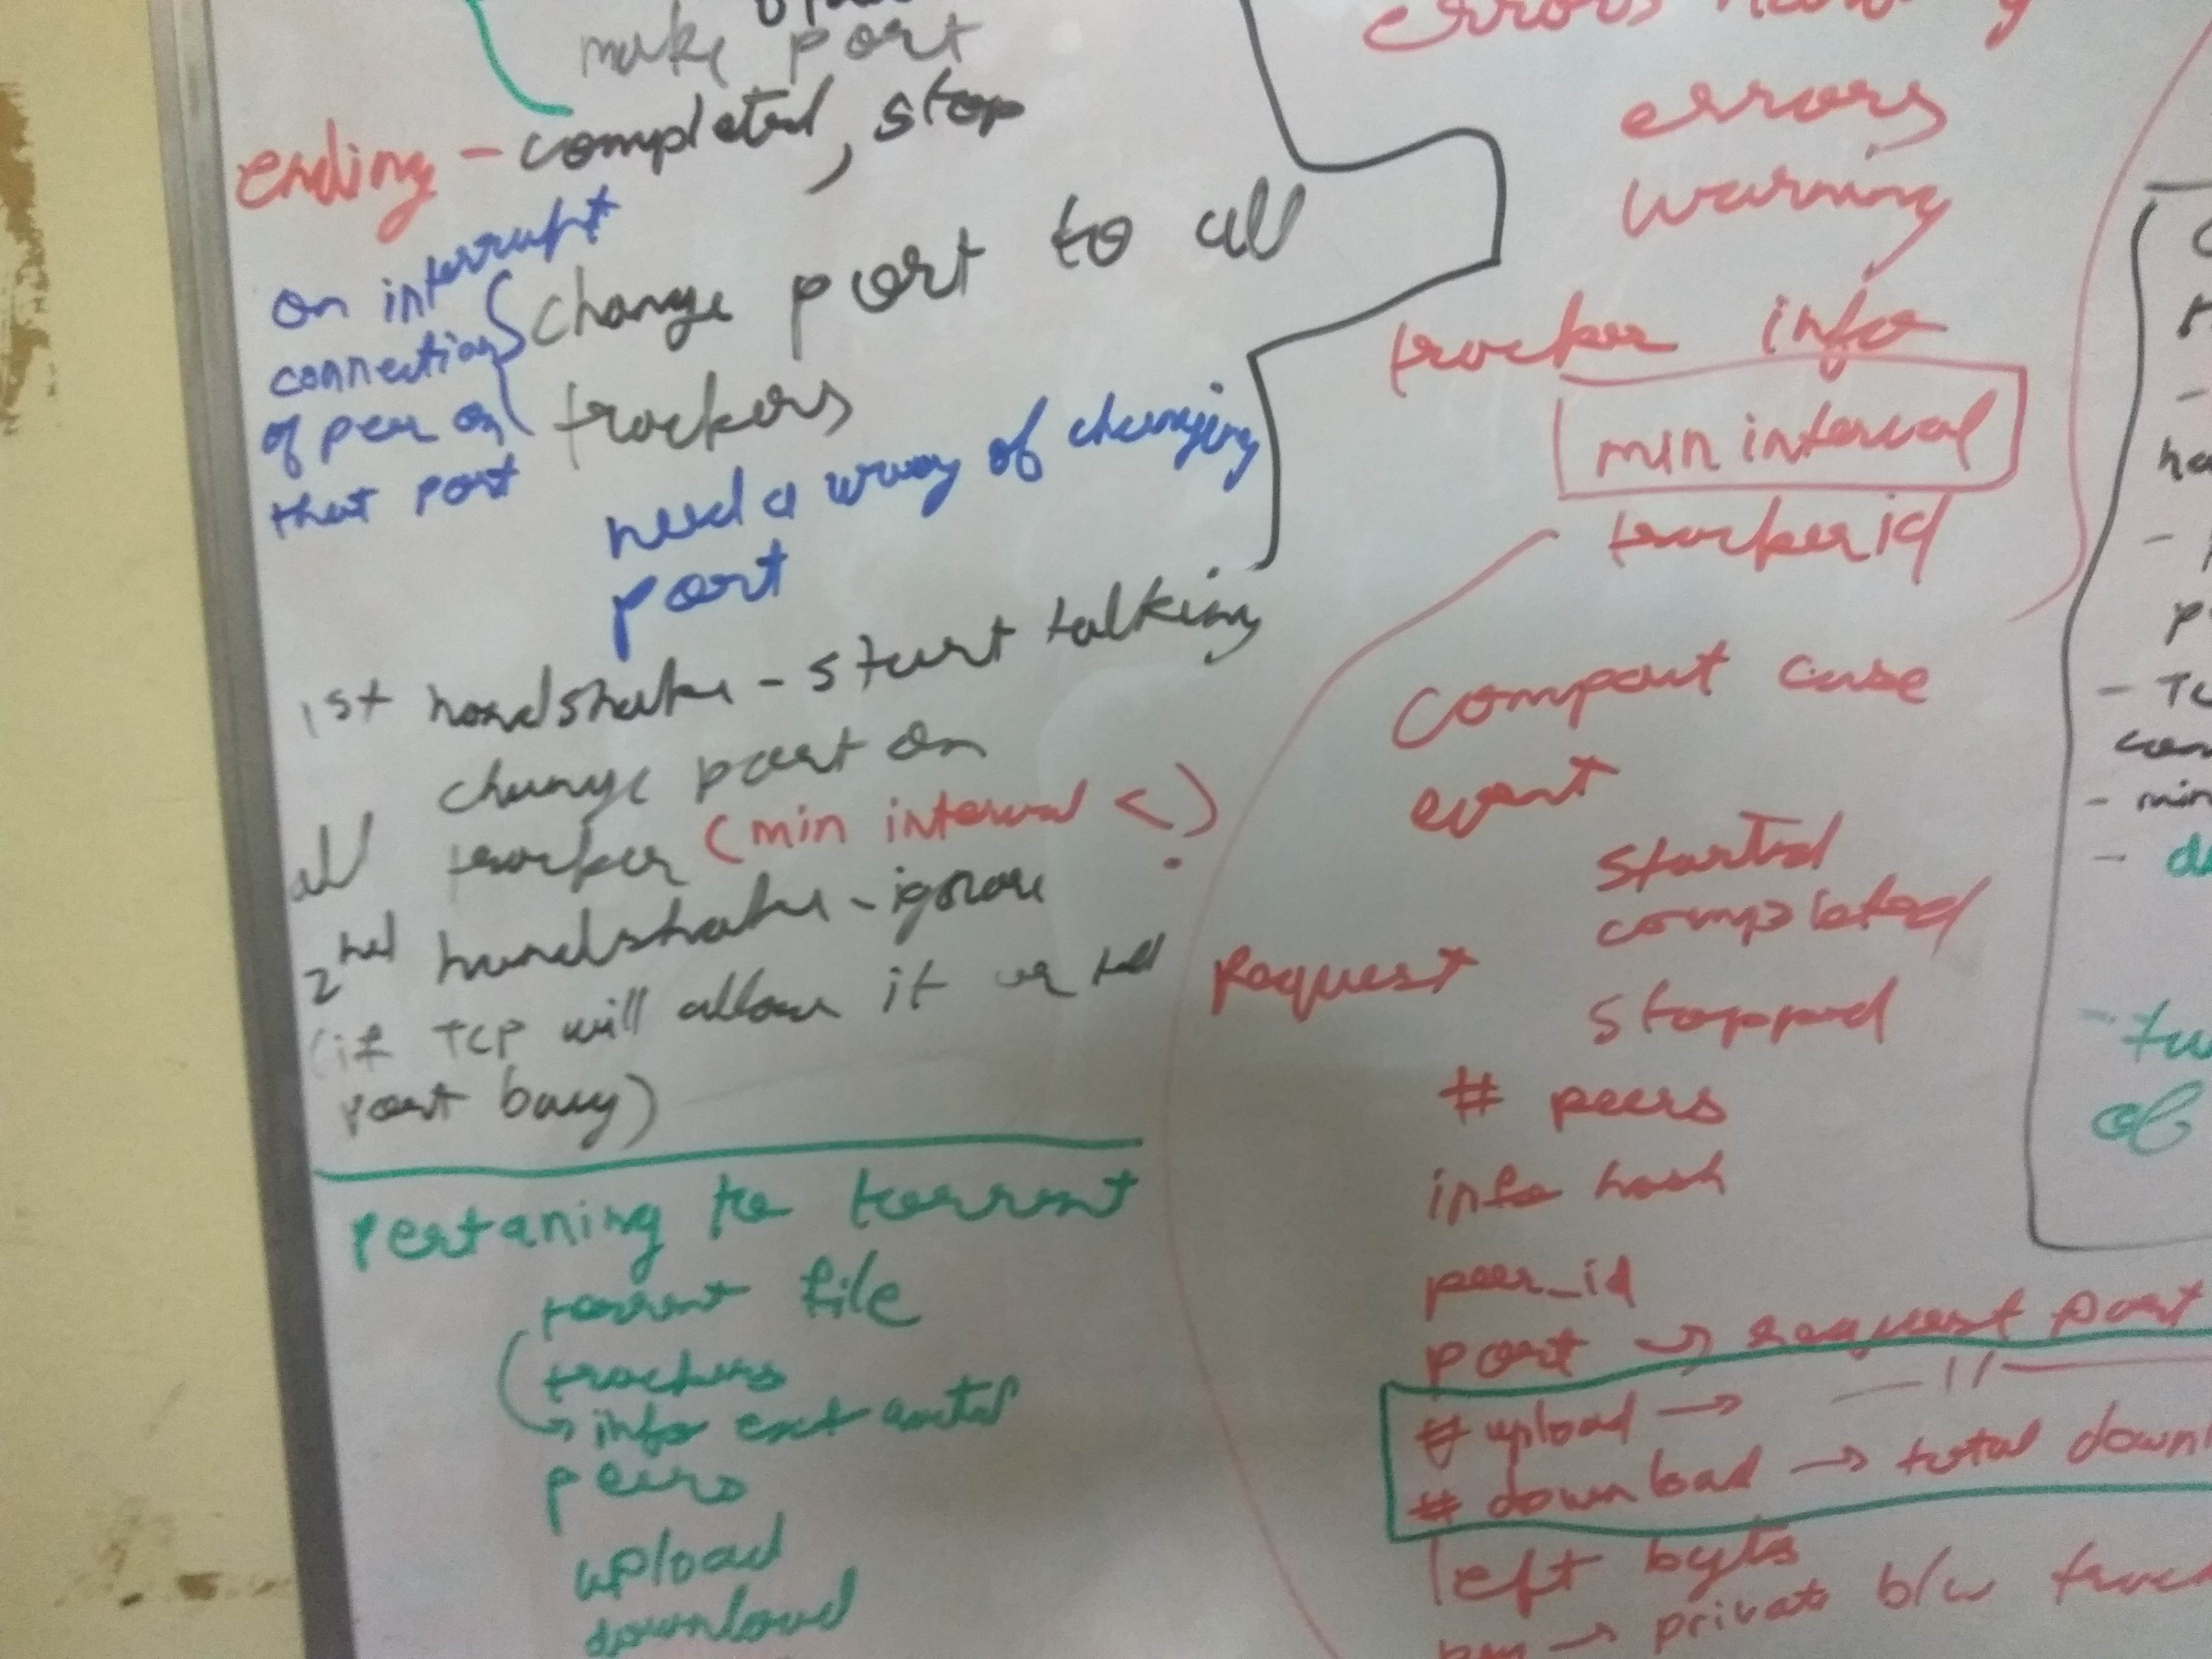 make port
ending - completed, stop
on interrupt
connection
of peer on
that port
change port to all
trackers
need a way of changing
port
1st handshake - start talking
change port on
all tracker (min interval <)
2nd handshake - ignore
(if TCP will allow it or tell
port busy)
pertaning to torrent
torrent file
trackers
info
peers
upload
download
errors
errors
warning
tracker info
min interval
trackerid
compact case
event
started
completed
Request
stopped
# peers
info hash
peer_id
port → request port
# upload → — 11 —
# download → total down
left bytes
→ private b/w
- TC
- min